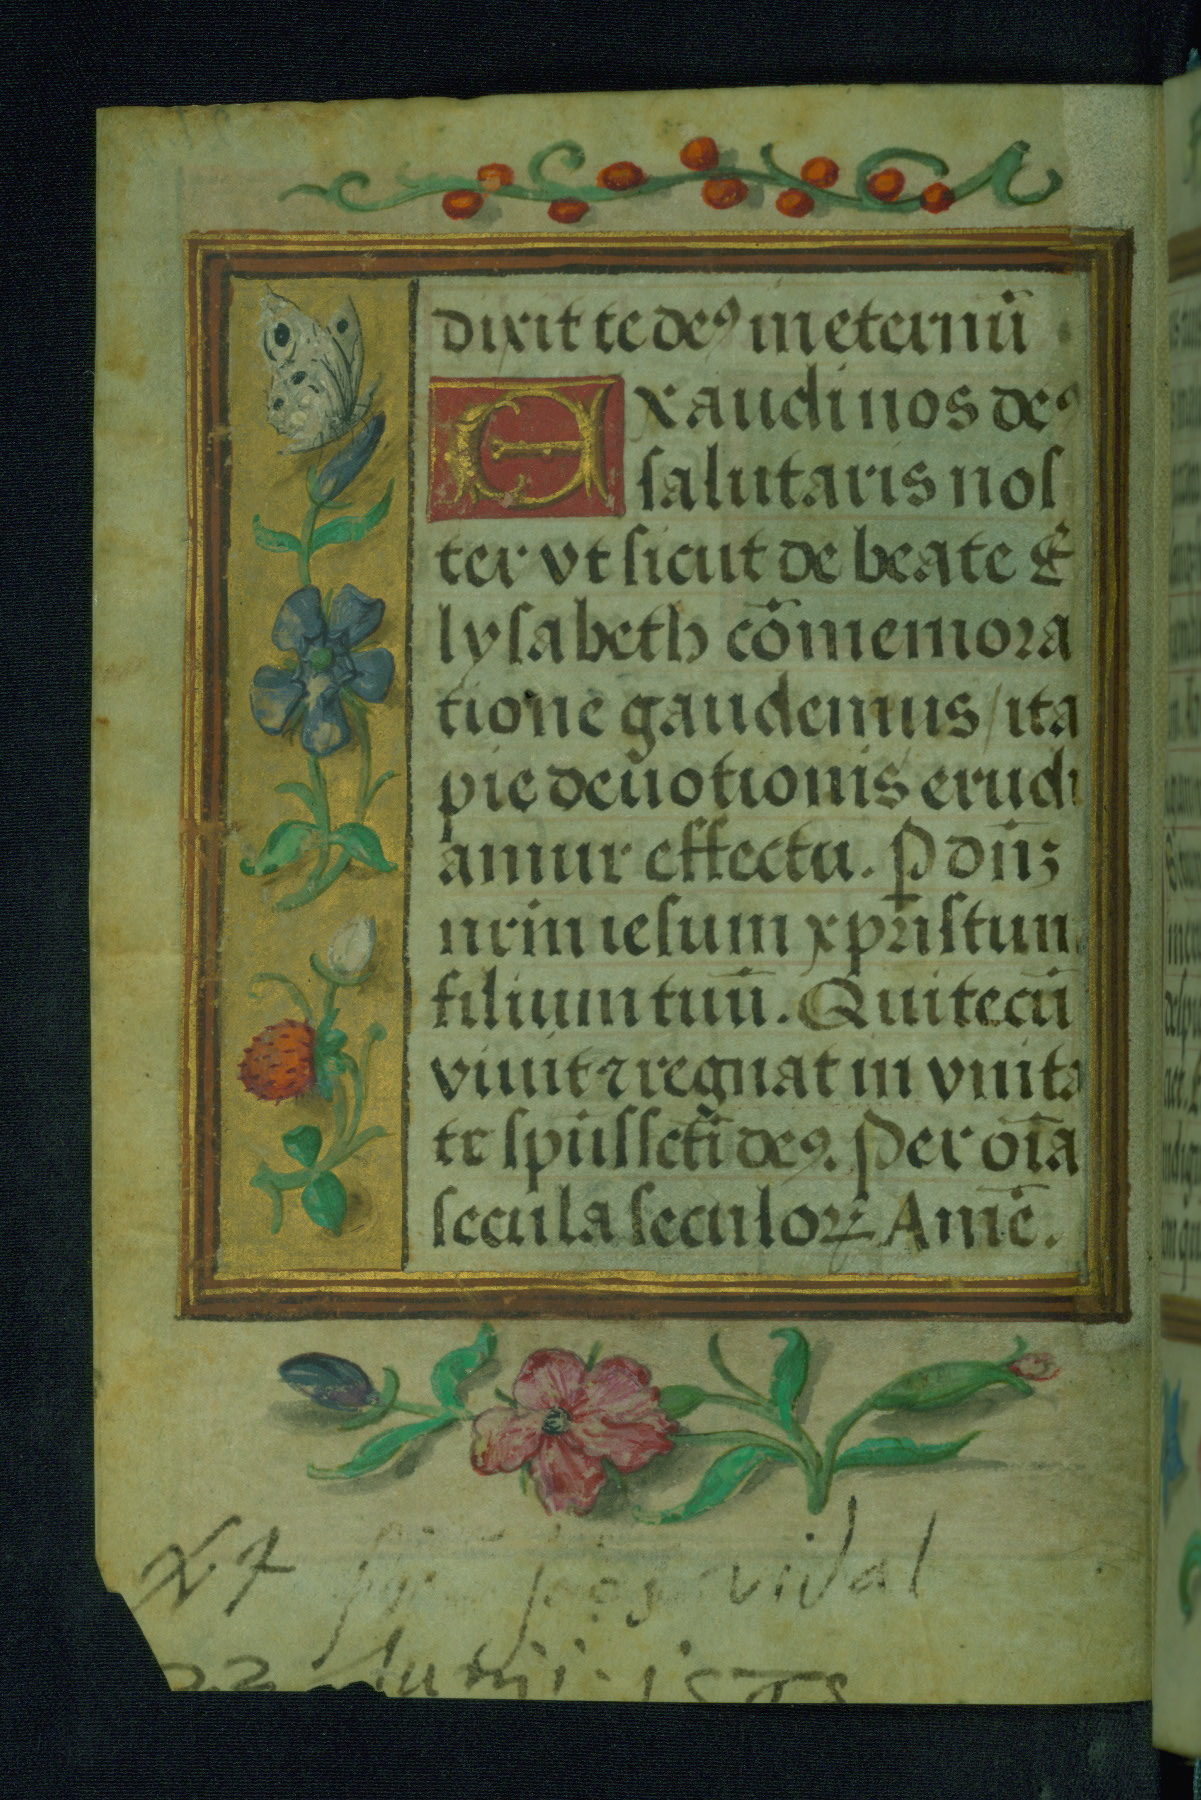 dixit te deꝰ in eternū
Exaudi nos deꝰ
salutaris nos
ter vt sicut de beate E
lysabeth cōmemora
tione gaudemus / ita
pie deuotionis erudi
amur effectu. P dn̄ꝫ
nr̄m iesum xpristum
filium tuū. Qui tecū
viuit ⁊ regnat in vnita
te spūs sctī deꝰ. Per oīa
secula seculoꝝ Amē.
vidal
22 Junii 15